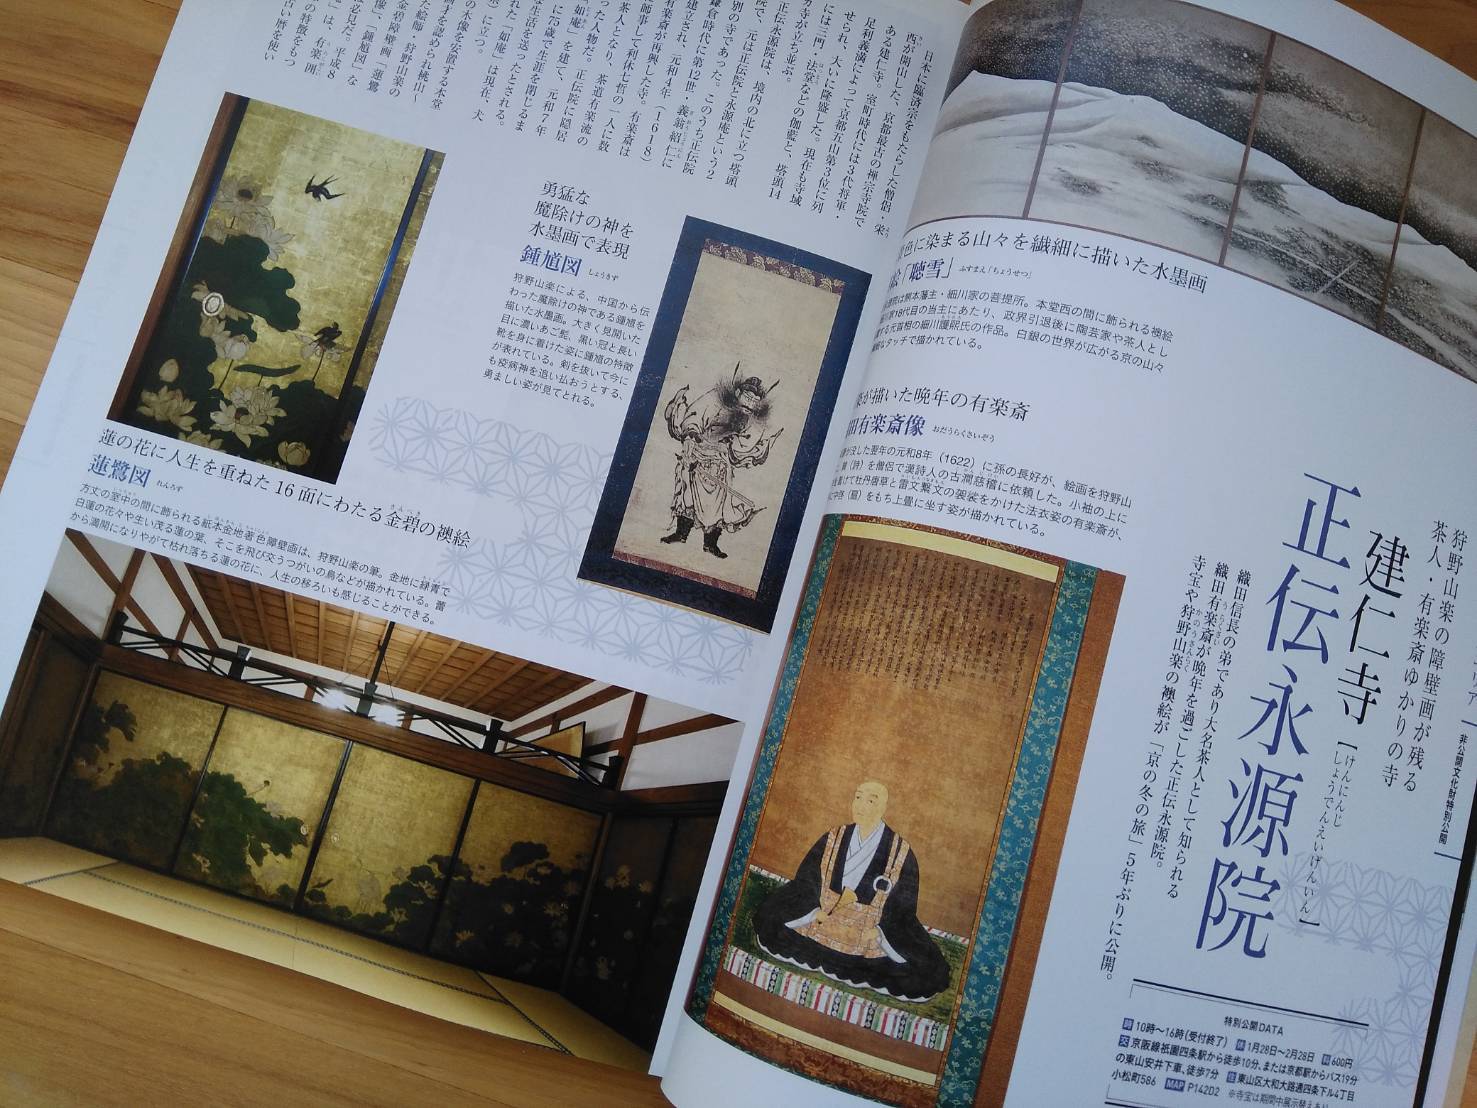 狩野山楽の障壁画が残る
茶人・有楽斎ゆかりの寺
非公開文化財特別公開
建仁寺
正伝永源院
[けんにんじ
しょうでんえいげんいん]
織田信長の弟であり大名茶人として知られる
織田有楽斎が晩年を過ごした正伝永源院。
寺宝や狩野山楽の襖絵が「京の冬の旅」5年ぶりに公開。
特別公開DATA
時 10時〜16時(受付終了) 休 1月28日〜2月28日 料 600円
交 京阪線祇園四条駅から徒歩10分、または京都駅からバス19分
の東山安井下車、徒歩7分 住 東山区大和大路通四条下ル4丁目
小松町586 MAP P142D2
色に染まる山々を繊細に描いた水墨画
絵「聴雪」 ふすまえ「ちょうせつ」
院は熊本藩主・細川家の菩提所。本堂西の間に飾られる襖絵
18代目の当主にあたり、政界引退後に陶芸家や茶人とし
元首相の細川護熙氏の作品。白銀の世界が広がる京の山々
なタッチで描かれている。
が描いた晩年の有楽斎
田有楽斎像 おだうらくさいぞう
が没した翌年の元和8年(1622)に孫の長好が、絵画を狩野山
、賛(詩)を僧侶で漢詩人の古澗慈稽に依頼した。小袖の上に
着けて牡丹唐草と雷文繋文の袈裟をかけた法衣姿の有楽斎が、
に中啓(扇)をもち上畳に坐す姿が描かれている。
日本に臨済宗をもたらした僧侶・栄
西が開山した、京都最古の禅宗寺院で
ある建仁寺。室町時代には3代将軍・
足利義満によって京都五山第3位に列
せられ、大いに隆盛した。現在も寺域
には三門・法堂などの伽藍と、塔頭14
カ寺が立ち並ぶ。
正伝永源院は、境内の北に立つ塔頭
院で、元は正伝院と永源庵という2
別の寺であった。このうち正伝院
鎌倉時代に第12世・義翁紹仁に
建立され、元和4年(1618)
有楽斎が再興した寺。有楽斎は
師事して利休七哲の一人に数
茶人となり、茶道有楽流の
った人物だ。正伝院に隠居
「如庵」を建て、元和7年
に75歳で生涯を閉じるま
な生活を送ったとされる。
れた「如庵」は現在、犬
)に立つ。
の木像を安置する本堂
才を認められ桃山〜
た絵師・狩野山楽の
金碧障壁画「蓮鷺
像、「鍾馗図」な
は必見だ。平成8
」は、有楽囲
の特徴をもつ
古い暦を使い
勇猛な
魔除けの神を
水墨画で表現
鍾馗図 しょうきず
狩野山楽による、中国から伝
わった魔除けの神である鍾馗を
描いた水墨画。大きく見開いた
目に濃いあご髭、黒い冠と長い
靴を身に着けた姿に鍾馗の特徴
が表れている。剣を抜いて今に
も疫病神を追い払おうとする、
勇ましい姿が見てとれる。
蓮の花に人生を重ねた16面にわたる金碧の襖絵
蓮鷺図 れんろず
方丈の室中の間に飾られる紙本金地著色障壁画は、狩野山楽の筆。金地に緑青で
白蓮の花々や生い茂る蓮の葉、そこを飛び交うつがいの鳥などが描かれている。蕾
から満開になりやがて枯れ落ちる蓮の花に、人生の移ろいも感じることができる。